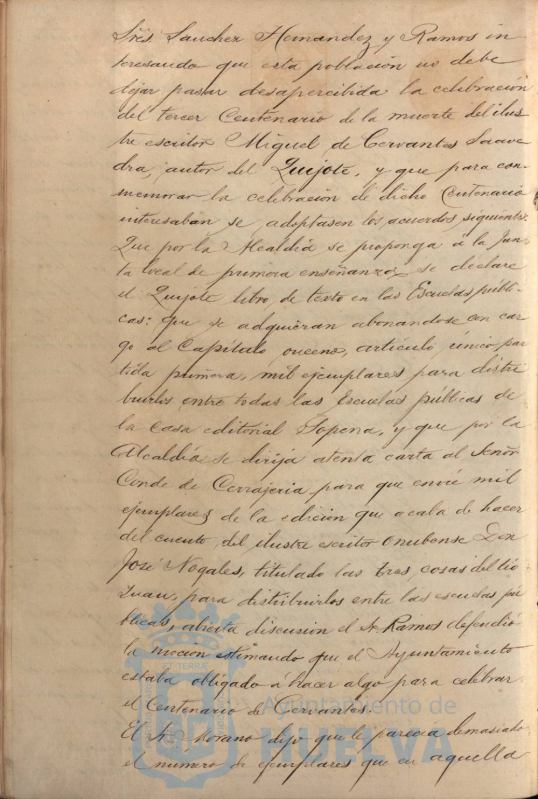 Srës. Sanchez Hernandez y Ramos in
teresando que esta población no debe
dejar pasar desapercibida la celebración
del tercer Centenario de la muerte del ilus
tre escritor Miguel de Cervantes Saave
dra, autor del Quijote, y que para con-
memorar la celebración de dicho Centenario
interesaban se adoptasen los acuerdos siguientes:
Que por la Alcaldia se proponga á la Jun
ta local de primera enseñanza se declare
el Quijote libro de texto en las Escuelas públi-
cas: que se adquieran abonandose con car
go al Capítulo onceno, artículo único, par
tida primera, mil ejemplares para distri
buirlos entre todas las Escuelas públicas de
la Casa editorial Sopena, y que por la
Alcaldia se dirija atenta carta al Señor
Conde de Cerrajeria para que envie mil
ejemplares de la edición que acaba de hacer
del cuento del ilustre escritor Onubense Don
José Nogales, titulado las tres cosas del tio
Juan, para distribuirlos entre las escuelas pú
blicas, abierta discusion el Sr. Ramos defendió
la mocion estimando que el Ayuntamiento
estaba obligado á hacer algo para celebrar
el Centenario de Cervantes.
El Sr. Morano dijo que le parecia demasiado
el número de ejemplares que en aquella
Ayuntamiento de
HUELVA